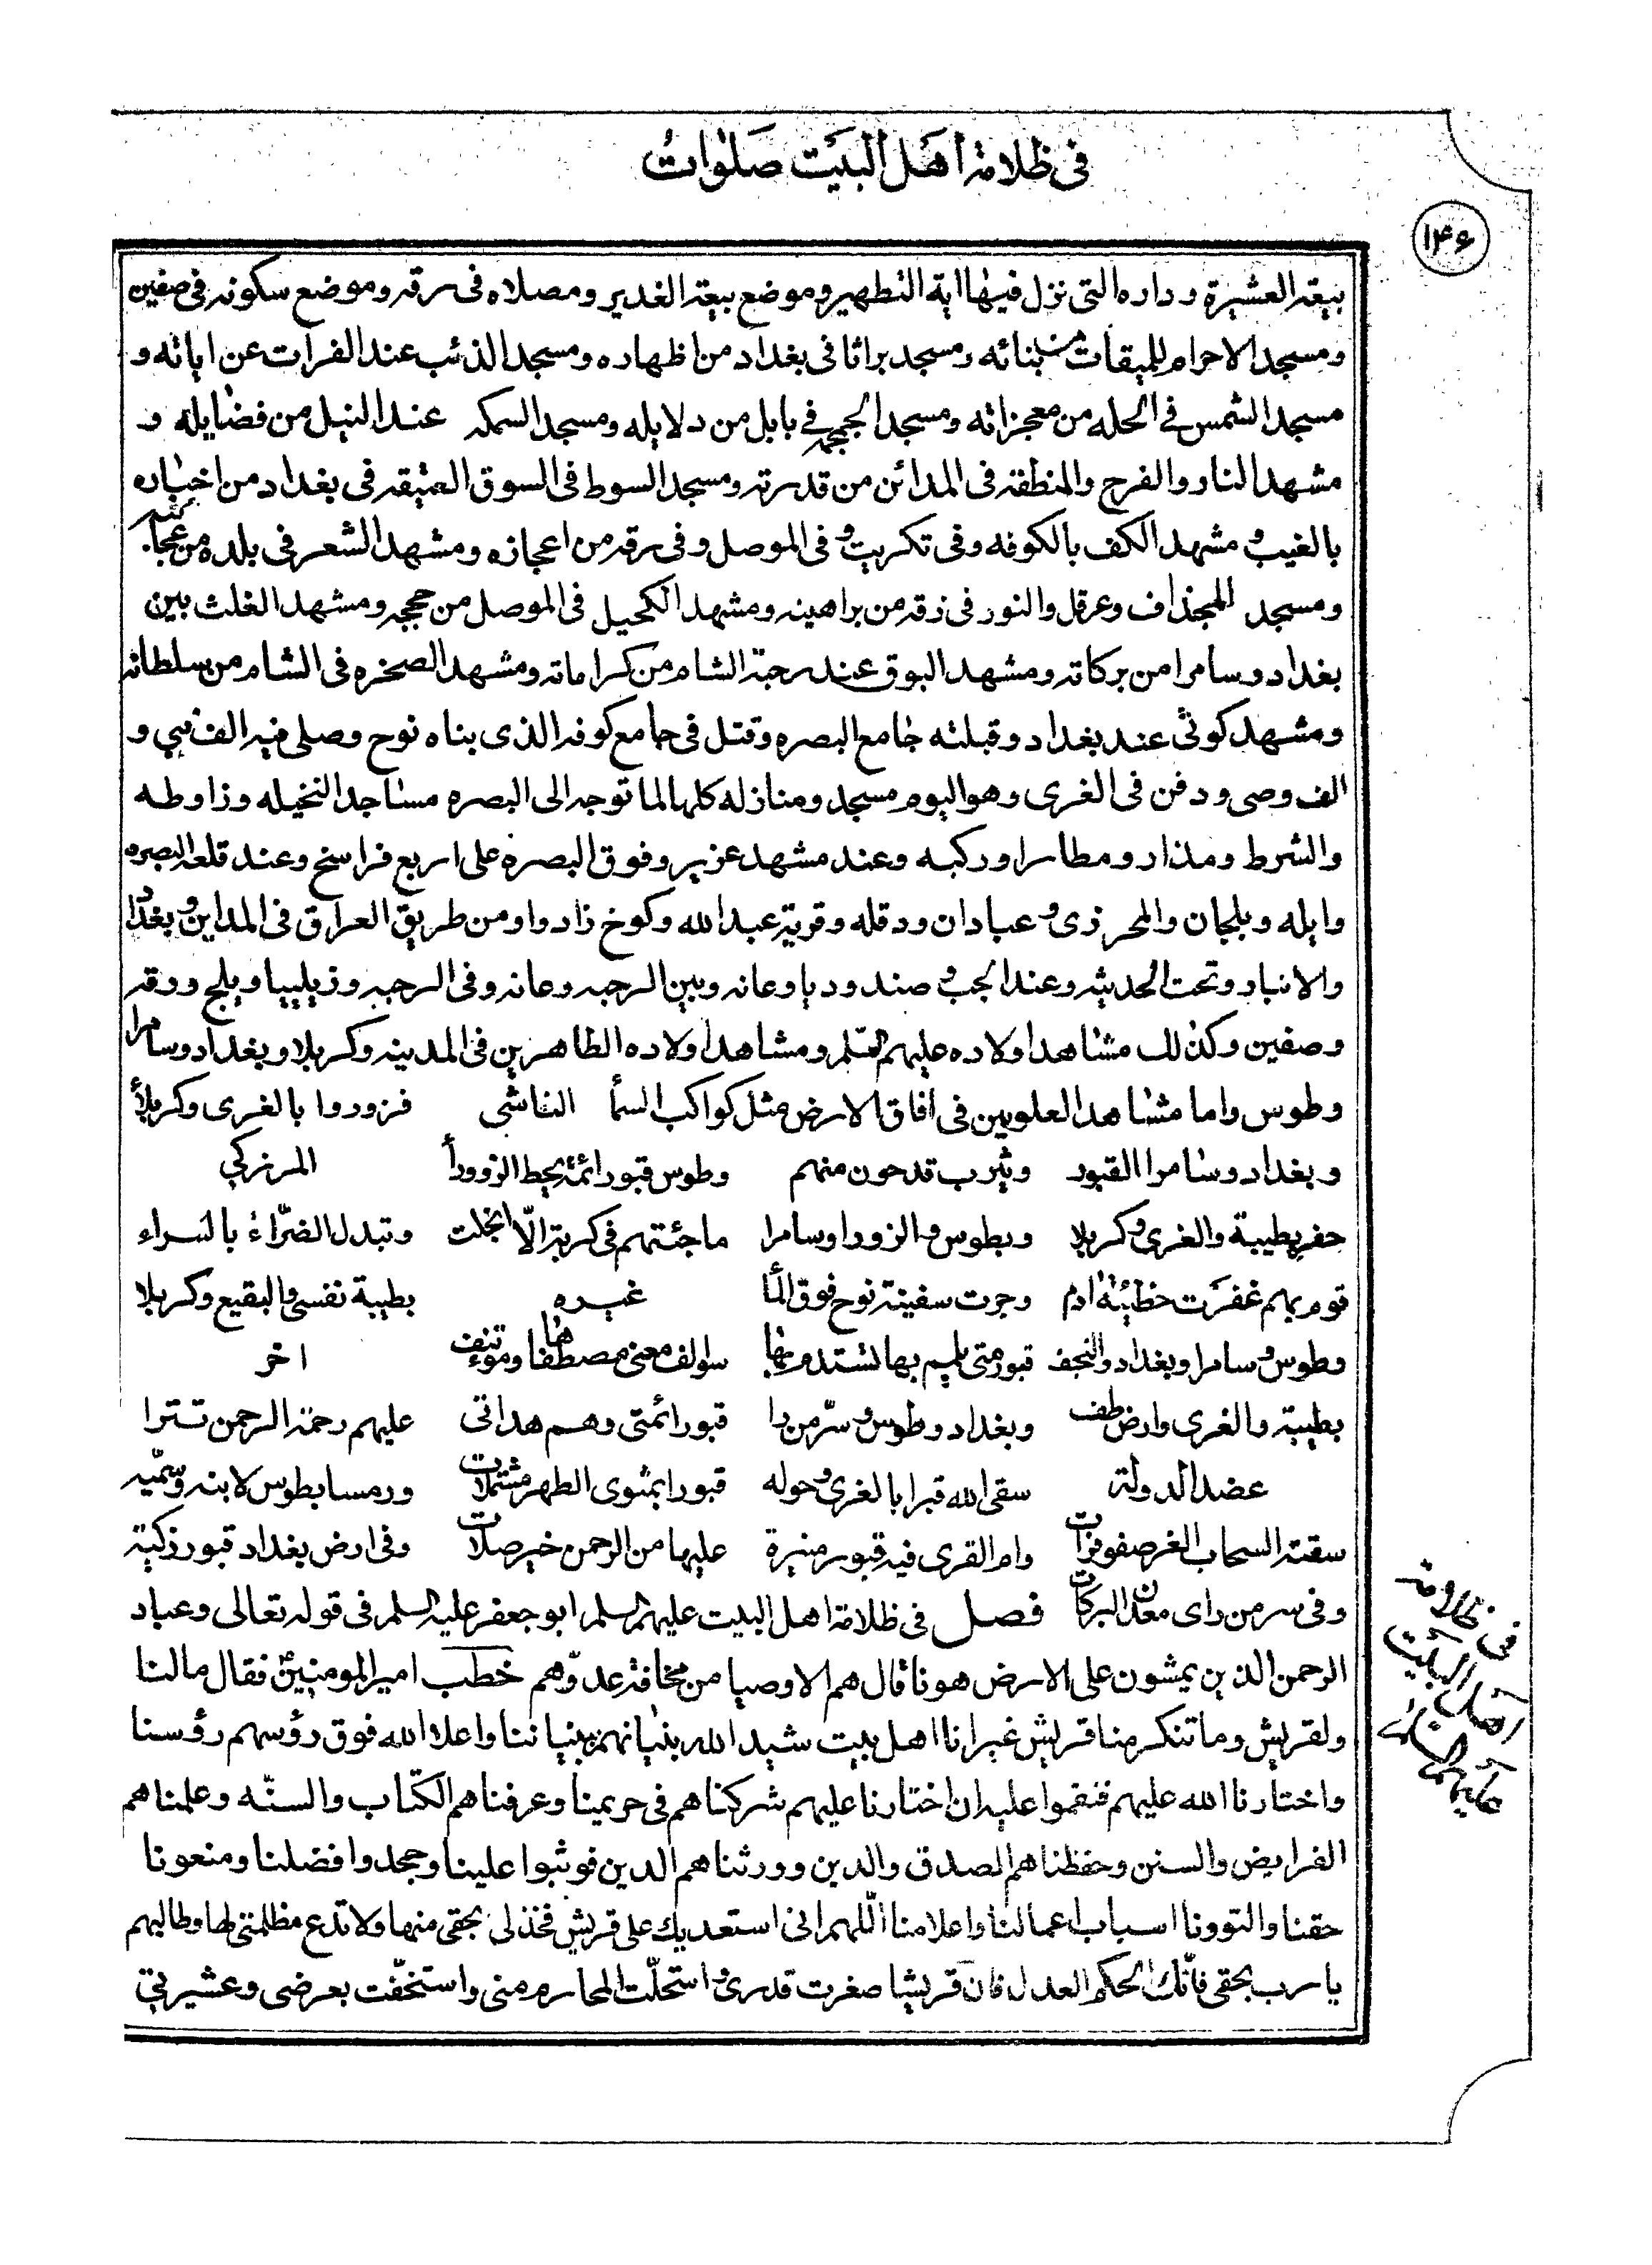 فى ظلامة اهل البيت صلوات
۱۴۶
بيعة العشيرة وداره التى نزل فيها اية التطهير وموضع بيعة الغدير ومصلاه فى رقه وموضع سكونه فى صفين
ومسجد الاحرام للميقات من بنائه ومسجد براثا فى بغداد من اظهاره ومسجد الذئب عند الفرات عن اياته و
مسجد الشمس فى الحله من معجزاته ومسجد الجمجمه فى بابل من دلايله ومسجد السمكه عند النيل من فضايله و
مشهد النار والفرج والمنطقه فى المدائن من قدرته ومسجد السوط فى السوق العتيقه فى بغداد من اخباره
بالغيب و مشهد الكف بالكوفه وفى تكريت و فى الموصل وفى رقه من اعجازه ومشهد الشعر فى بلده من عجائبه
ومسجد المجذاف وعرقل والنور فى زقه من براهينه ومشهد الكحيل فى الموصل من حججه ومشهد الغلث بين
بغداد وسامرا من بركاته ومشهد البوق عند رحبة الشام من كراماته ومشهد الصخره فى الشام من سلطانه
ومشهد كوثى عند بغداد وقبلته جامع البصره وقتل فى جامع كوفه الذى بناه نوح وصلى فيه الف نبي و
الف وصى ودفن فى الغرى وهو اليوم مسجد ومنازله كلها لما توجه الى البصره مساجد النخيله وزاوطه
والشرط ومذار ومطارا وركبه وعند مشهد عزير وفوق البصره على اربع فراسخ وعند قلعه البصره
وابله وبلجان والمحرزى و عبادان ودقله وقرية عبد الله وكوخ زادوا ومن طريق العراق فى المداين و بغداد
والانبار وتحت الحديثه وعند الجب و صندوديا وعانه وبين الرحبه وعانه وفى الرحبه وزيلبيا وبلج ورقه
وصفين وكذلك مشاهد اولاده عليهم السلم ومشاهد اولاده الطاهرين فى المدينه وكربلا وبغداد وسامرا
وطوس واما مشاهد العلويين فى افاق الارض مثل كواكب السمأ الناشى فزوروا بالغرى وكربلأ
وبغداد وسامرا القبور ويثرب قد حون منهم وطوس قبور ائمة يحط الزوورأ المرزكي
حفر بطيبة والغرى و كربلا وبطوس و الزورا وسامرا ما جئتهم فى كربة الّا انجلت وتبدل الضرّاء بالسراء
قوم بهم غفرت خطيئة ادم وجرت سفينة نوح فوق المأ غيره بطيبة نفسى والبقيع وكربلا
وطوس و سامرا وبغداد والنجف قبور متى يلمم بها سوالف معنى مصطفاها وموءتنف اخر
بطيبة والغرى وارض طف وبغداد وطوس و سرّ من را قبور ائمتى وهم هداتى عليهم رحمة الرحمن تترا
عضد الدولة سقى الله قبرا بالغرى و حوله قبورا بمثوى الطهر مشتملات ورمسا بطوس لابنه وسميّه
سقته السحاب الغر صفو فرات وام القرى فيه قبور منيرة عليها من الرحمن خير صلات وفى ارض بغداد قبور زكية
وفى سر من راى معدن البركات فصل فى ظلامة اهل البيت عليهم السلم ابو جعفر عليه السلم فى قوله تعالى وعباد
الرحمن الذين يمشون على الارض هونا قال هم الاوصيا من مخافة عدوّهم خطب امير المومنين ع فقال ما لنا
ولقريش وما تنكر منا قريش غير انا اهل بيت شيد الله بنيانهم ببنياننا واعلا الله فوق رؤسهم رؤسنا
واختارنا الله عليهم فنقموا عليه ان اختارنا عليهم شركناهم فى حريمنا وعرفناهم الكتاب والسنّه وعلمناهم
الفرايض والسنن وحفظناهم الصدق والدين وورثناهم الدين فوثبوا علينا وجحدوا فضلنا ومنعونا
حقنا والتوونا اسباب اعمالنا واعلامنا اللّهم انى استعديك على قريش فخذ لى بحقى منها ولا تدع مظلمتى لها وطالبهم
يا رب بحقى فانّك الحكم العدل فان قريشا صغرت قدرى و استحلّت المحارم منى واستخفّت بعرضى وعشيرتى
فى ظلامة
اهل البيت
عليهم السلام